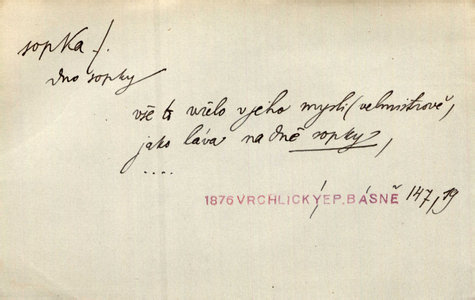 sopka f.
dno sopky
vše to vřelo v jeho mysli (velmistrově)
jako láva na dně sopky,
....
1876 VRCHLICKÝ EP. BÁSNĚ 147, 19